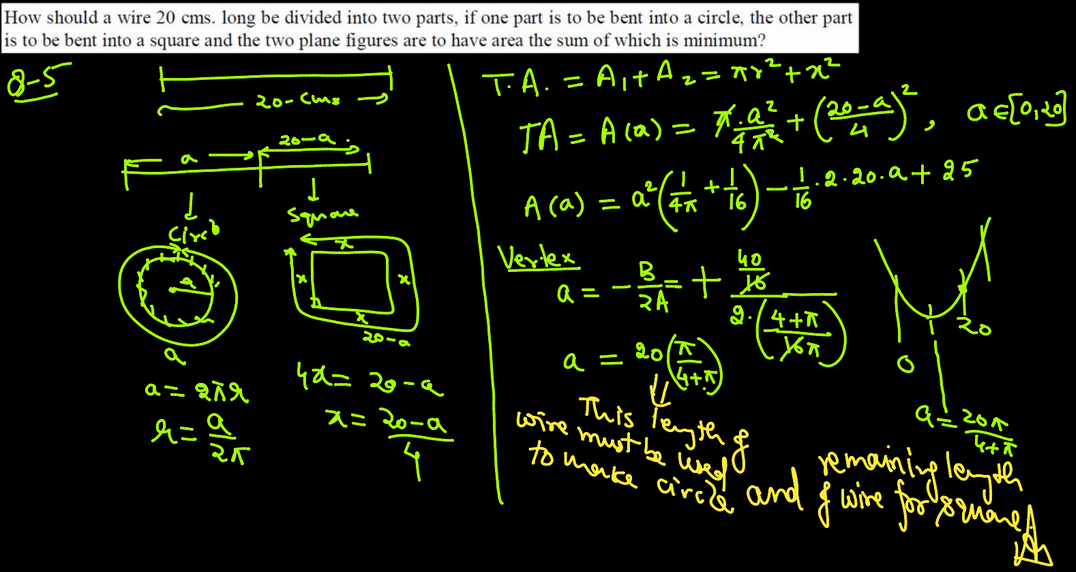 How should a wire 20 cms. long be divided into two parts, if one part is to be bent into a circle, the other part
is to be bent into a square and the two plane figures are to have area the sum of which is minimum?
8-5
20-cms
a 20-a
Circle
Square
a
x
x x
x
20-a
a
a = 2πr
r = a/2π
4x = 20-a
x = (20-a)/4
T.A. = A₁ + A₂ = πr² + x²
TA = A(a) = π·a²/4π² + ((20-a)/4)², a∈[0,20]
A(a) = a²(1/4π + 1/16) - 1/16·2·20·a + 25
Vertex
a = -B/2A = + (40/16)/(2·((4+π)/16π))
a = 20(π/(4+π))
0 20
a = 20π/(4+π)
This length of
wire must be used
to make circle and remaining length
of wire for square